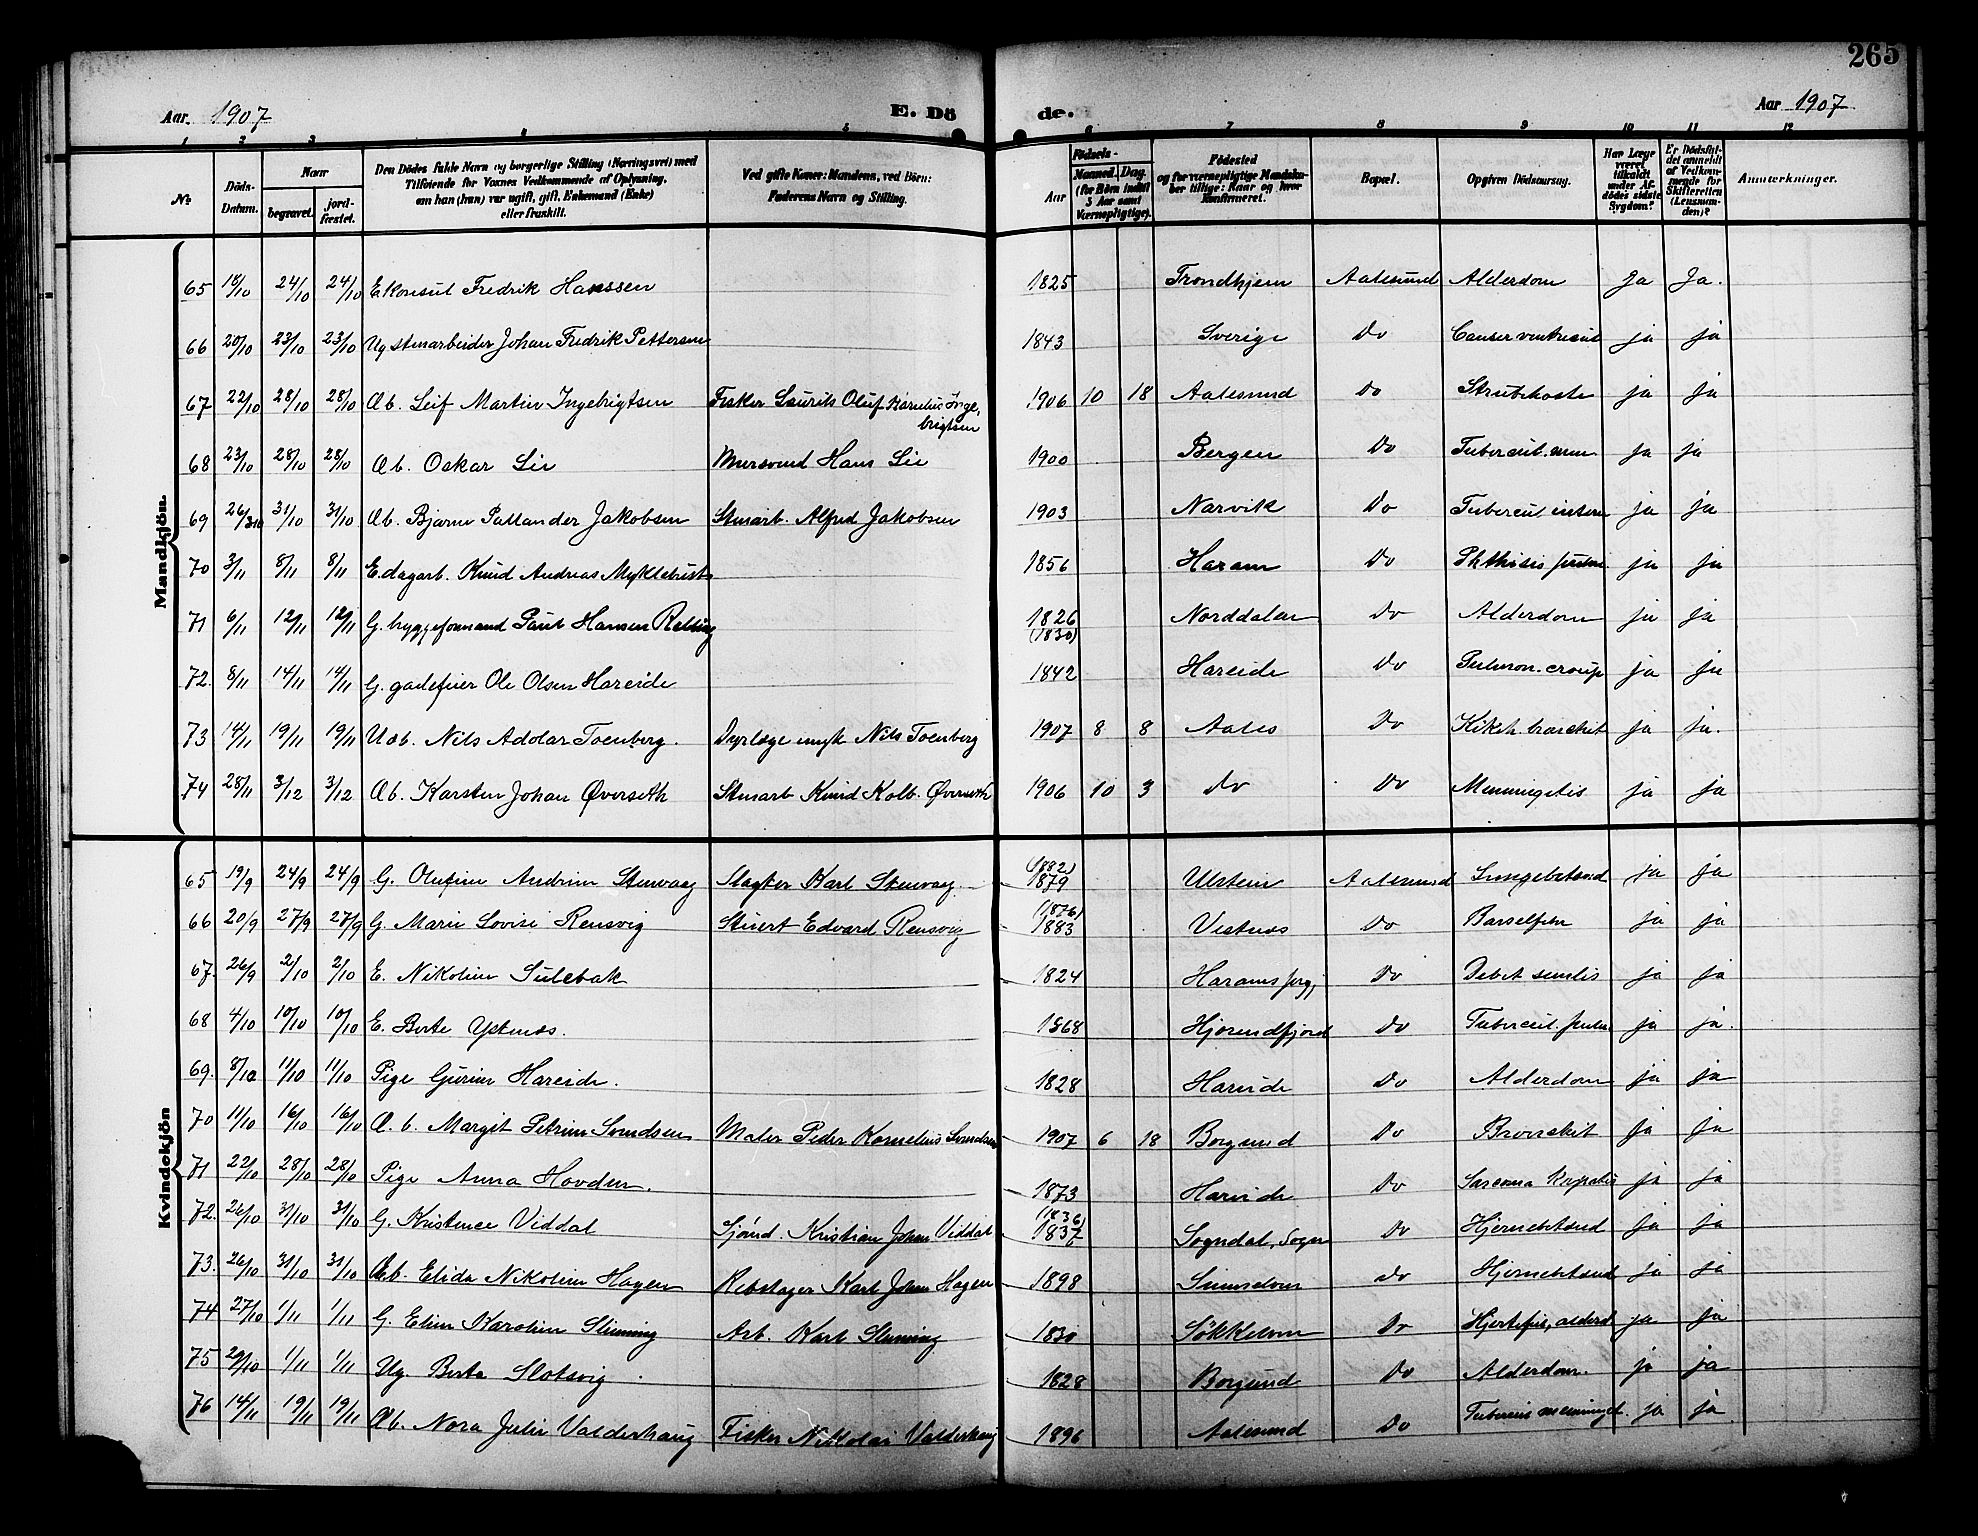 265
Aar. 1907 E. Dö de. Aar 1907
1 2 3 4 5 6 7 8 9 10 11 12
No.
Döds-Datum.
Naar
begravet.
jord-fæstet.
Den Dödes fulde Navn og borgerlige Stilling (Næringsvei) med
Tilføiende for Voxnes Vedkommende af Oplysning,
om han (hun) var ugift, gift, Enkemand (Enke)
eller fraskilt.
Ved gifte Koner: Mandens, ved Börn:
Faderens Navn og Stilling.
Födsels-
Aar
Maaned. Dag.
(for Börn indtil
5 Aar samt
Værnepligtige).
Födested
og for værnepligtige Mandska-
ber tillige: Naar og hvor
konfirmeret.
Bopæl.
Opgiven Dödsaarsag.
Har Læge
været
tilkaldt
under Af-
dödes sidste
Sygdom?
Er Dödsfal-
det anmeldt
af Vedkom-
mende for
Skifteretten
(Lensman-
den)?
Anmærkninger.
Mandkjön.
65 18/10 24/10 24/10 E Konsul Fredrik Hanssen 1825 Trondhjem Aalesund Alderdom Ja Ja.
66 20/10 23/10 23/10 Ug stenarbeider Johan Fredrik Pettersen 1843 Sverige Do Cancer ventricul ja ja
67 22/10 28/10 28/10 Æb. Leif Martin Ingebrigtsen Fisker Laurits Oluf Kornelius Inge-
brigtsen 1906 10 18 Aalesund Do Strubehoste ja ja
68 23/10 28/10 28/10 Æb. Oskar Lie Mursvend Hans Lie 1900 Bergen Do Tubercul. men ja ja
69 26/10 31/10 31/10 Æb. Bjarne Pallander Jakobsen Stenarb. Alfred Jakobsen 1903 Narvik Do Tubercul. intern ja ja
70 3/11 8/11 8/11 E dagarb. Knud Andreas Myklebust 1856 Haram Do Phthisis pulm ja ja
71 6/11 12/11 12/11 G. byggeformand Paul Hansen Relling 1826
(1830) Norddalen Do Alderdom ja ja
72. 8/11 14/11 14/11 G. gadefeier Ole Olsen Hareide 1842 Hareide Do Pulmon. croup ja ja
73 14/11 19/11 19/11 Uæb. Nils Adolar Toenberg. Dyrlæge Nils Toenberg 1907 8 8 Aales Do Kikh. bronchit ja ja.
74 28/11 3/12 3/12 Æb. Karsten Johan Øverseth Stenarb Knud Kolb. Øverseth 1906 10 3 Do Do Menningitis ja ja
Kvindekjön
65 19/9 24/9 24/9 G. Olufine Andrine Stenvaag Slagter Karl Stenvaag. (1882)
1879 Ulstein Aalesund Lungebetænd ja ja
66 20/9 27/9 27/9 G. Marie Lovise Rensvig Stuert Edvard Rensvig (1876)
1883 Vestnes Do Barselfeber ja ja
67. 26/9 2/10 2/10 E. Nikoline Sulebak 1824 Harams prgj Do Debet senilis ja ja
68 4/10 10/10 10/10 E. Berte Ystenes. 1868 Hjørendfjord Do Tubercul. pulm ja ja.
69. 8/10 11/10 11/10 Pige Gurine Hareide. 1828 Hareide Do Alderdom ja ja
70 11/10 16/10 16/10 Æ. b. Margit Petrine Svendsen Maler Peder Kornelius Svendsen 1907 6 18 Borgund Do Bronchit ja ja
71 22/10 28/10 28/10 Pige Anna Hovden. 1873 Hareide Do Sarcoma hepatis ja ja
72. 26/10 31/10 31/10 G. Kristence Viddal Sjømd. Kristian Johan Viddal (1836)
1837 Sogndal, Sogn Do Hjernebetænd ja ja
73. 26/10 31/10 31/10 Æb. Elida Nikoline Hagen Rebslager Karl Johan Hagen 1898 Do Hjernebetænd ja ja
74 27/10 1/11 1/11 G. Eline Karoline Slinning Arb. Karl Slinning 1830 Søkkelven Do Hjertefeil, alderd ja ja
75 29/10 1/11 1/11 Ug. Berte Slotsvig 1828 Borgund Do Alderdom. ja ja
76 14/11 19/11 19/11 Æb. Nora Julie Valderhaug Fisker Nikolai Valderhaug 1896 Aalesund Do Tubercul meninget. ja ja